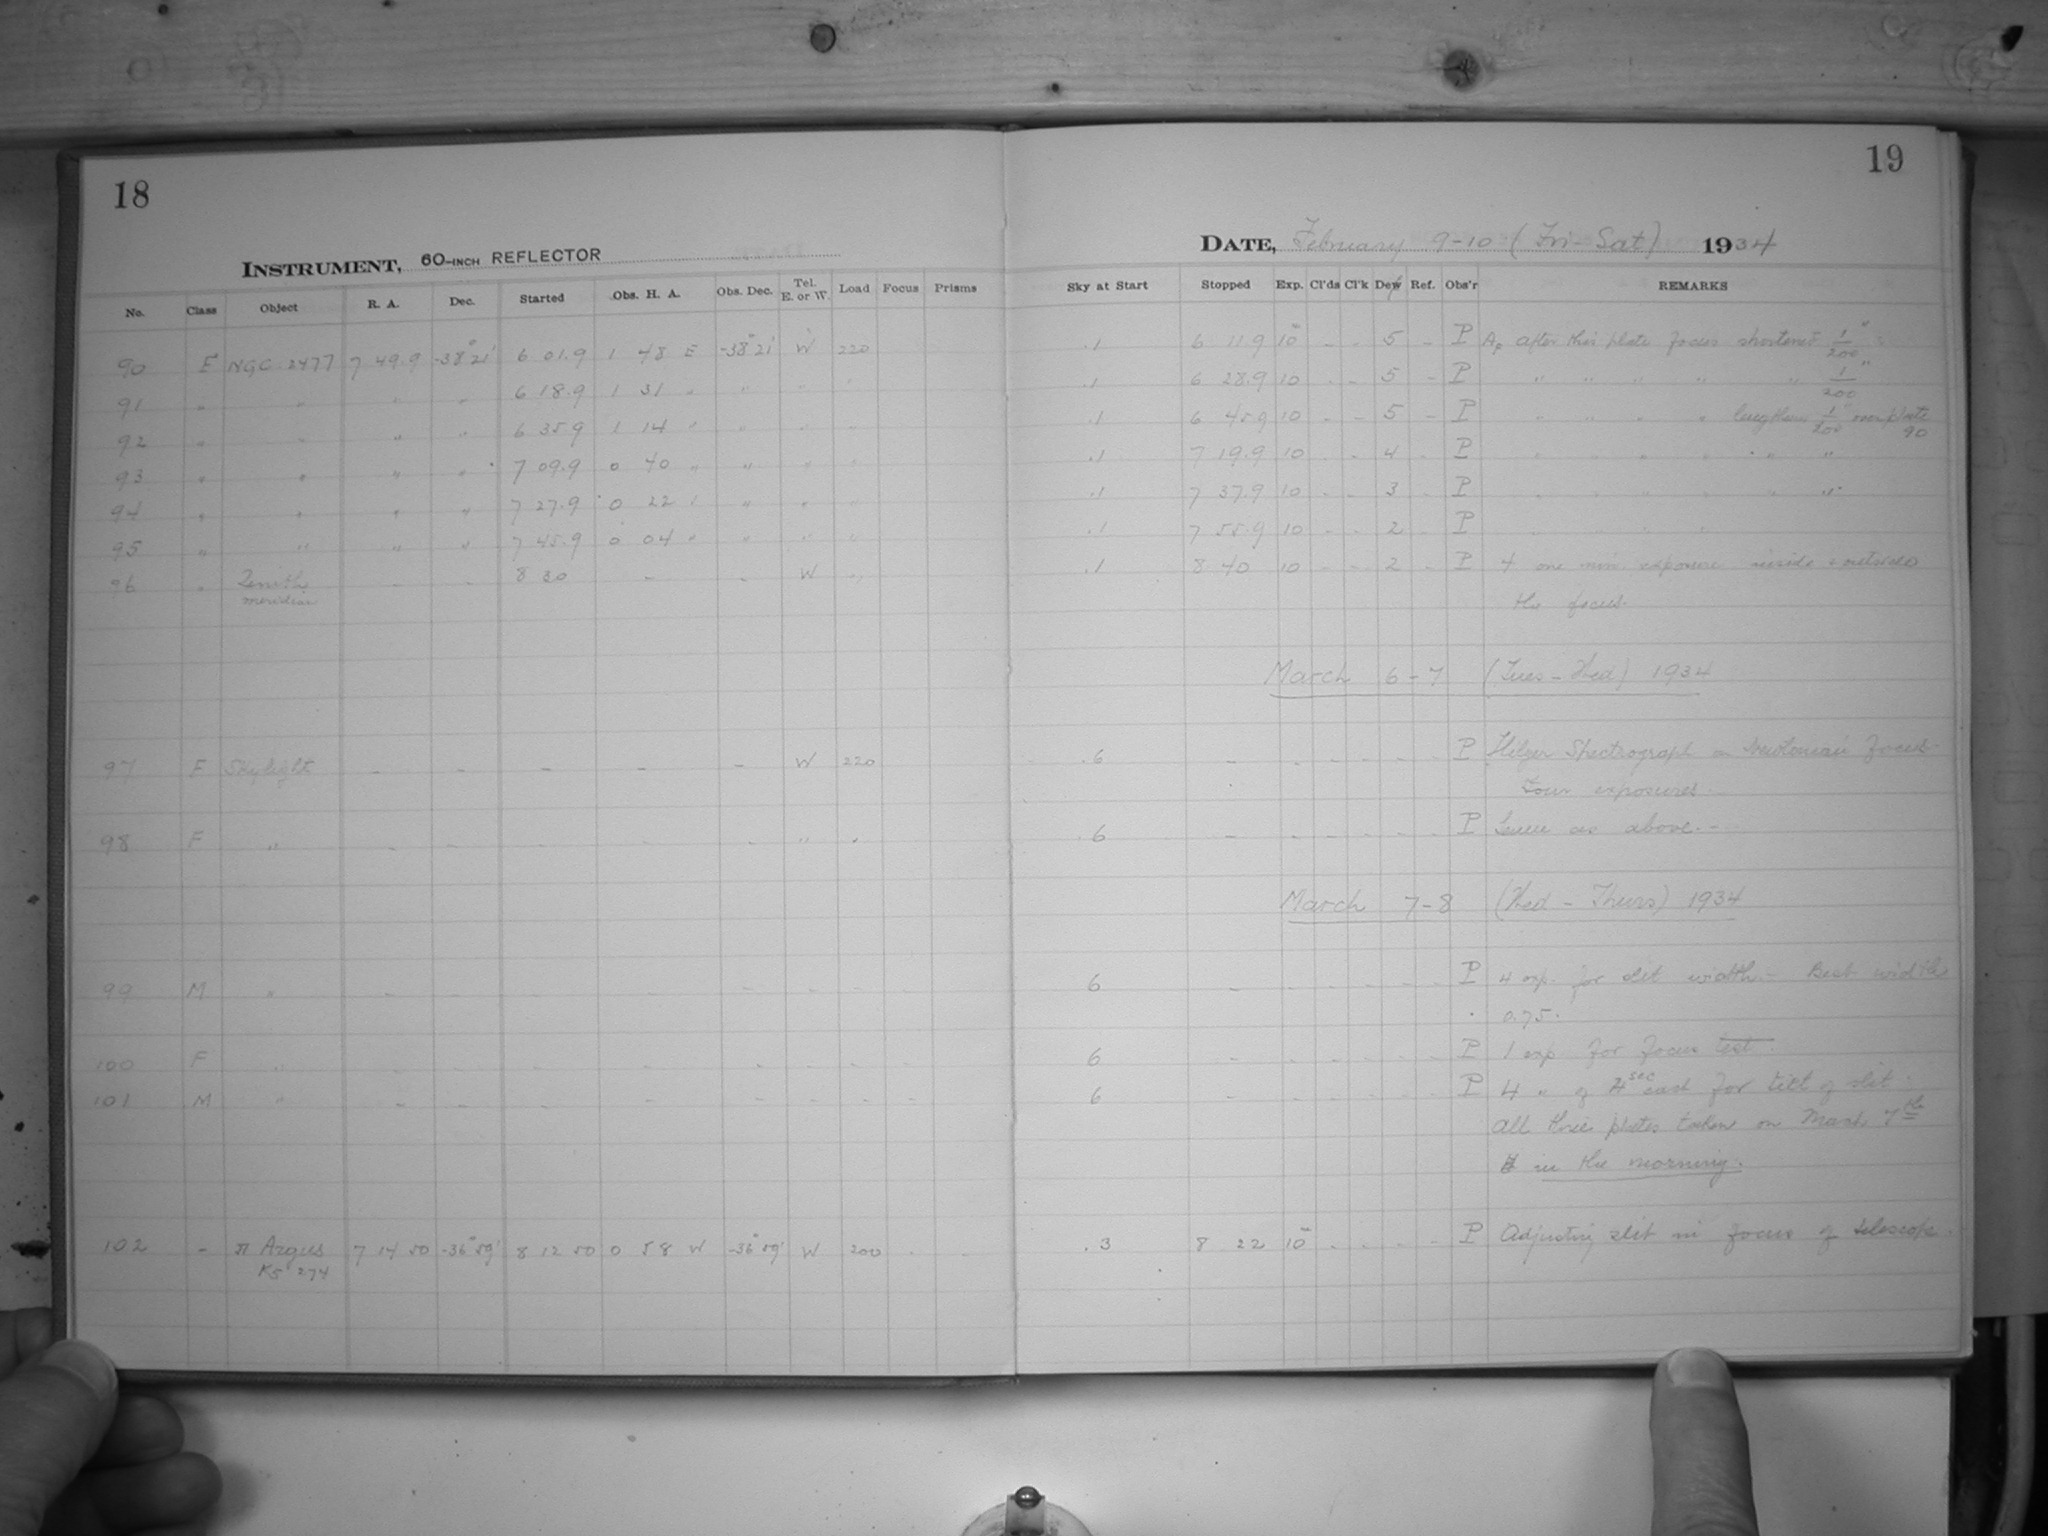 18
INSTRUMENT, 60-INCH REFLECTOR
No. Class Object R. A. Dec. Started Obs. H. A. Obs. Dec. Tel. E. or W. Load Focus Prisms
90 F NGC 2477 7 49.9 -38° 21' 6 01.9 1 48 E -38° 21' W 220
91 " " " " 6 18.9 1 31 " " " "
92 " " " " 6 35.9 1 14 " " " "
93 " " " " 7 09.9 0 40 " " " "
94 " " " " 7 27.9 0 22 " " " "
95 " " " " 7 45.9 0 04 " " " "
96 " Zenith - - 8 30 - - W "
meridian
97 F Skylight - - - - - W 220
98 F " - - - - - " "
99 M " - - - - - - - - -
100 F " - - - - - - - - -
101 M " - - - - - - - - -
102 - π Argus 7 14 50 -36° 59' 8 12 50 0 58 W -36° 59' W 200 - -
K5 274
19
DATE, February 9-10 (Fri-Sat) 1934
Sky at Start Stopped Exp. Cl'ds Cl'k Dew Ref. Obs'r REMARKS
.1 6 11.9 10m - - 5 - P after this plate focus shortened 1/200"
.1 6 28.9 10 - - 5 - P " " " " " 1/200"
.1 6 45.9 10 - - 5 - P " " " " lengthen 1/200" over plate 90
.1 7 19.9 10 - - 4 - P " " " " " "
.1 7 37.9 10 - - 3 - P " " " " " "
.1 7 55.9 10 - - 2 - P " " " "
.1 8 40 10 - - 2 - P + one min. exposure inside & outside
the focus.
March 6-7 (Tues-Wed) 1934
.6 - - - - - - P Hilger Spectrograph on Newtonian Focus
Four exposures.
.6 - - - - - - P Same as above.-
March 7-8 (Wed-Thurs) 1934
6 - - - - - - P 4 exp. for slit width - Best width
0.75.
6 - - - - - - P 1 exp for focus test.
6 - - - - - - P 4 " of 4 sec each for tilt of slit.
All three plates taken on March 7th
in the morning.
.3 8 22 10m - - - - P Adjusting slit in focus of telescope.